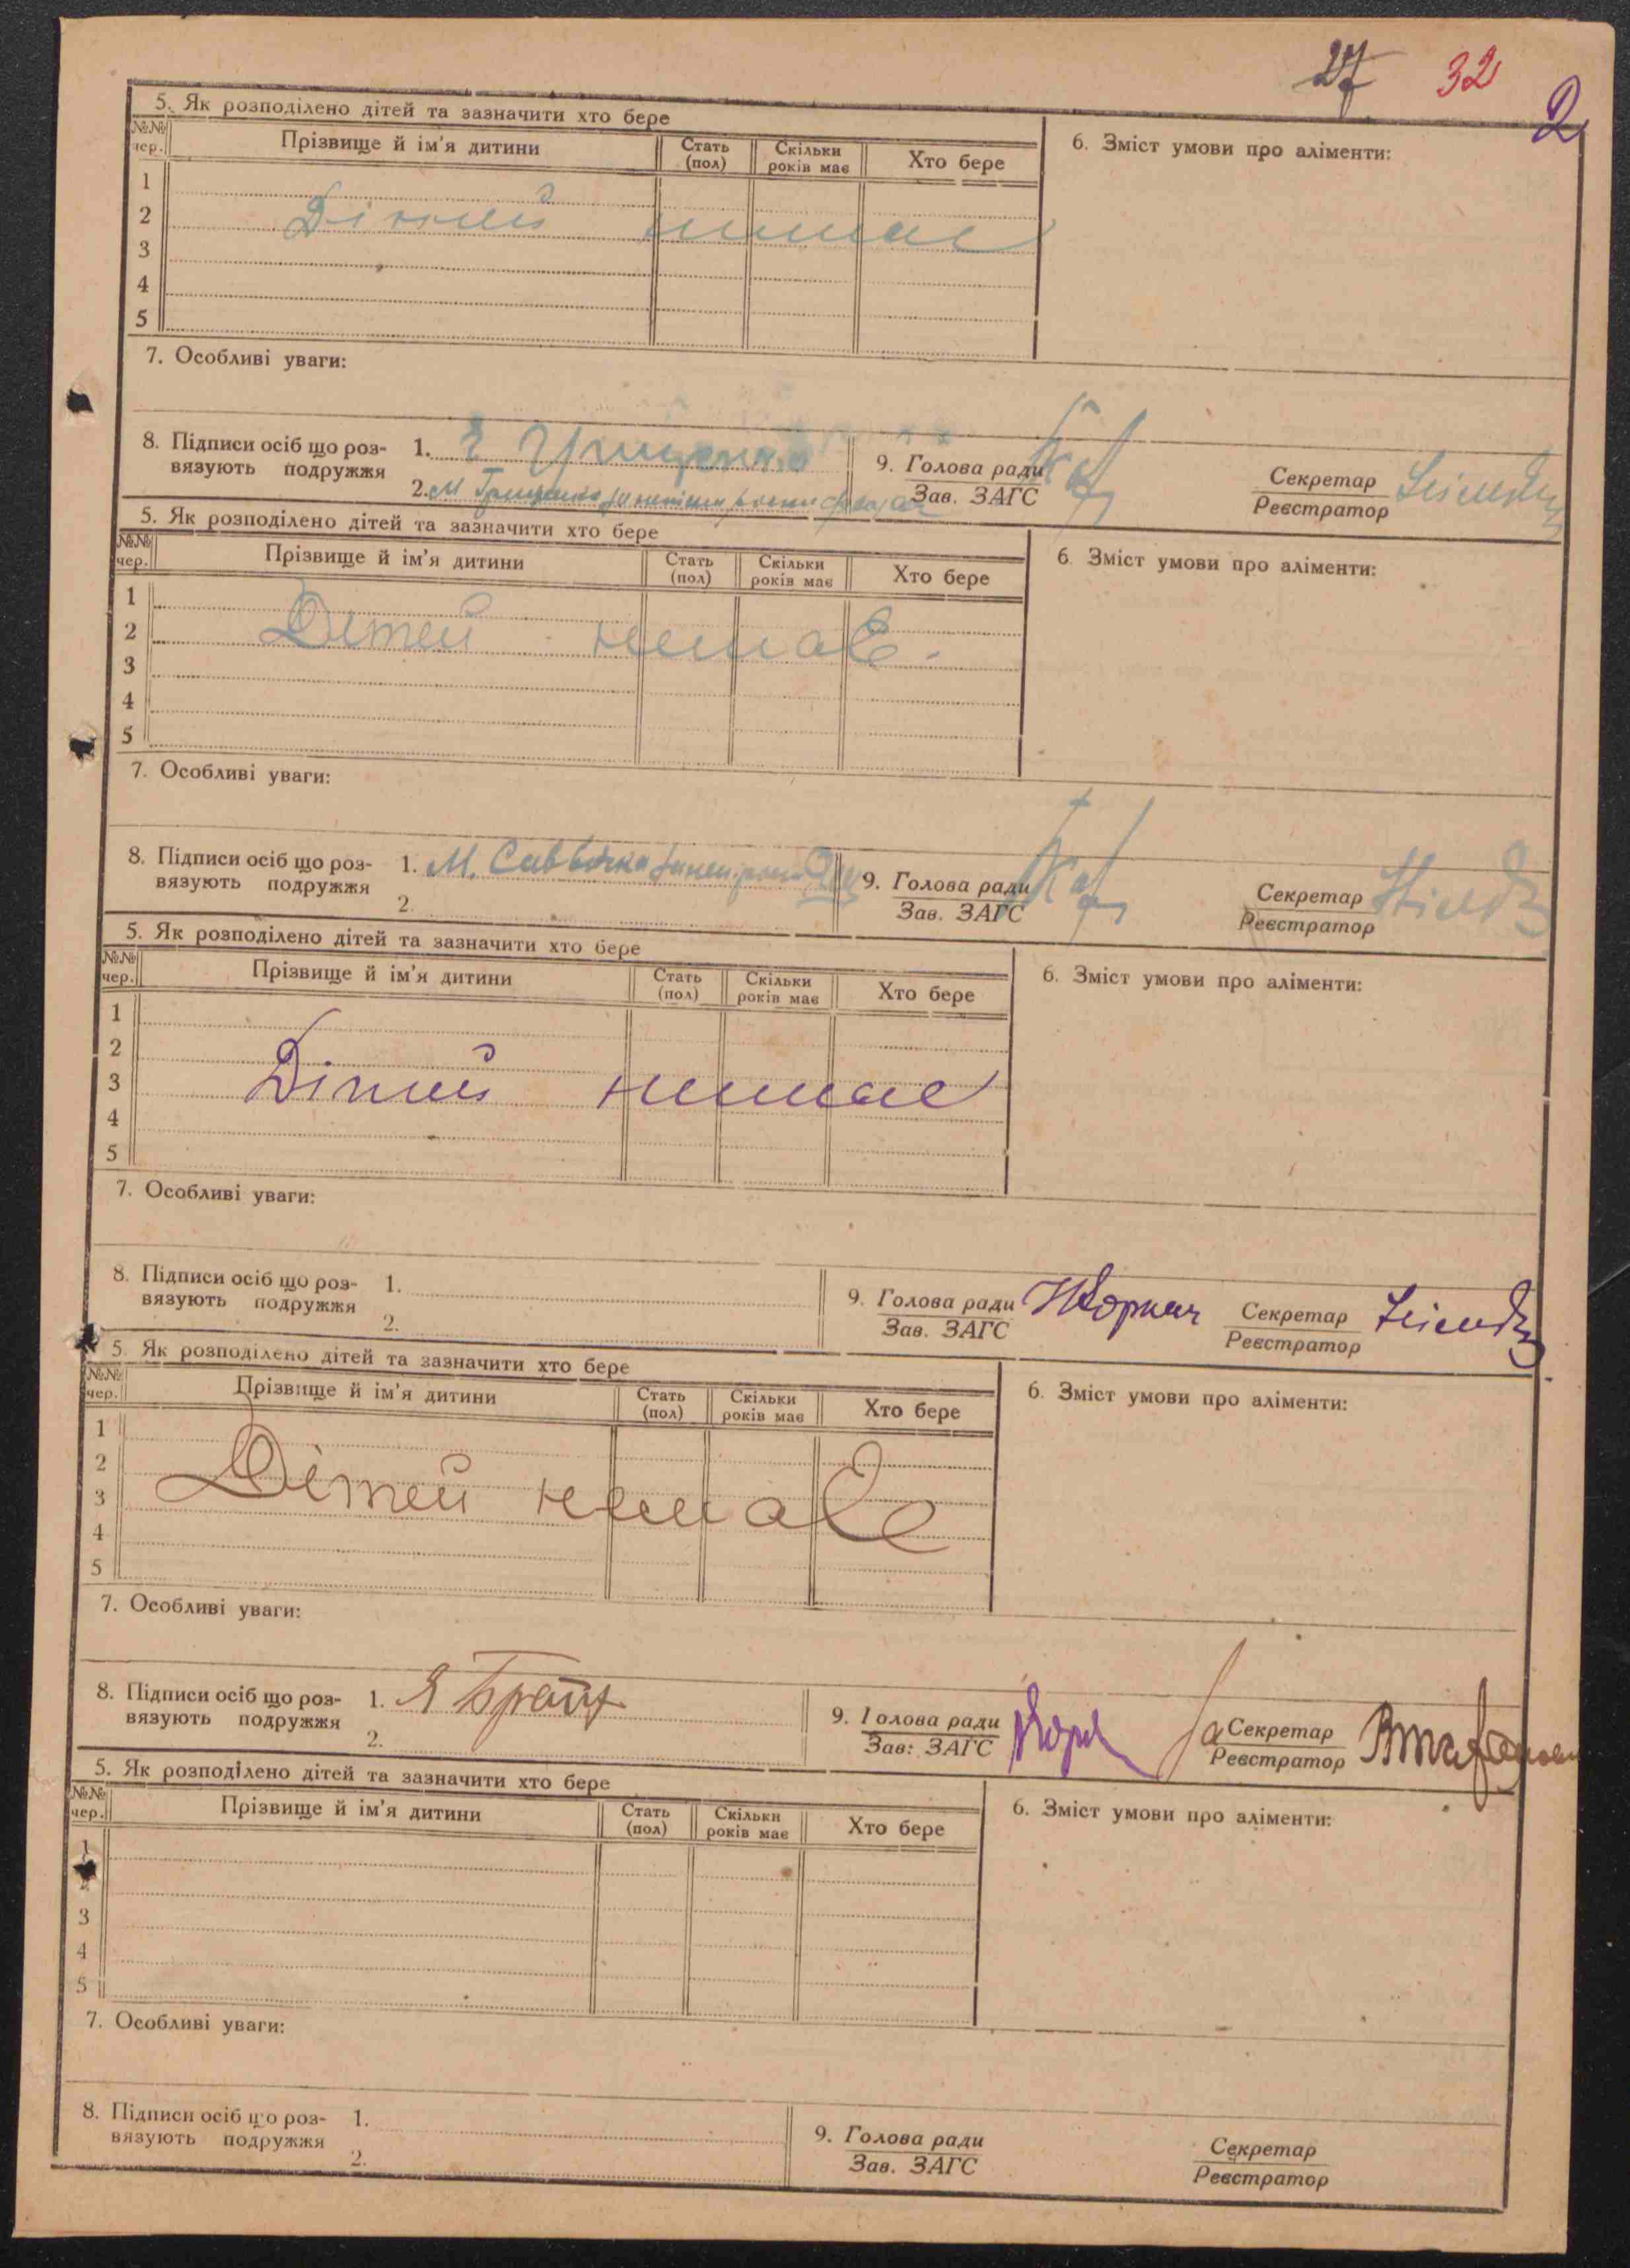 27 32 2
5. Як розподілено дітей та зазначити хто бере
6. Зміст умови про аліменти:
№№ чер. Прізвище й ім'я дитини Стать (пол) Скільки років має Хто бере
1
2 Дітей немає
3
4
5
7. Особливі уваги:
8. Підписи осіб що роз-вязують подружжя
1. Грищенко
2. М Грищенко
9. Голова ради
Зав. ЗАГС
Секретар
Реєстратор
5. Як розподілено дітей та зазначити хто бере
6. Зміст умови про аліменти:
№№ чер. Прізвище й ім'я дитини Стать (пол) Скільки років має Хто бере
1
2 Дітей немає.
3
4
5
7. Особливі уваги:
8. Підписи осіб що роз-вязують подружжя
1. М. Саввочка
2.
9. Голова ради
Зав. ЗАГС
Секретар
Реєстратор
5. Як розподілено дітей та зазначити хто бере
6. Зміст умови про аліменти:
№№ чер. Прізвище й ім'я дитини Стать (пол) Скільки років має Хто бере
1
2
3 Дітей немає
4
5
7. Особливі уваги:
8. Підписи осіб що роз-вязують подружжя
1.
2.
9. Голова ради
Зав. ЗАГС
Секретар
Реєстратор
5. Як розподілено дітей та зазначити хто бере
6. Зміст умови про аліменти:
№№ чер. Прізвище й ім'я дитини Стать (пол) Скільки років має Хто бере
1
2
3 Дітей немає
4
5
7. Особливі уваги:
8. Підписи осіб що роз-вязують подружжя
1.
2.
9. Голова ради
Зав: ЗАГС
За Секретар
Реєстратор
5. Як розподілено дітей та зазначити хто бере
6. Зміст умови про аліменти:
№№ чер. Прізвище й ім'я дитини Стать (пол) Скільки років має Хто бере
1
2
3
4
5
7. Особливі уваги:
8. Підписи осіб що роз-вязують подружжя
1.
2.
9. Голова ради
Зав. ЗАГС
Секретар
Реєстратор